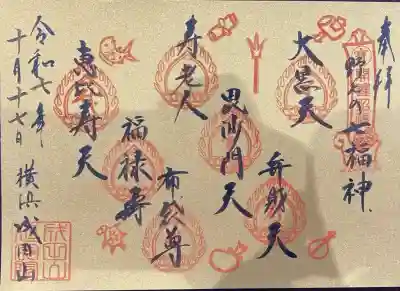 奉拝
七福神
大黒天
弁財天
毘沙門天
寿老人
布袋尊
福禄寿
恵比寿天
令和七年
十月十七日
横浜成田山